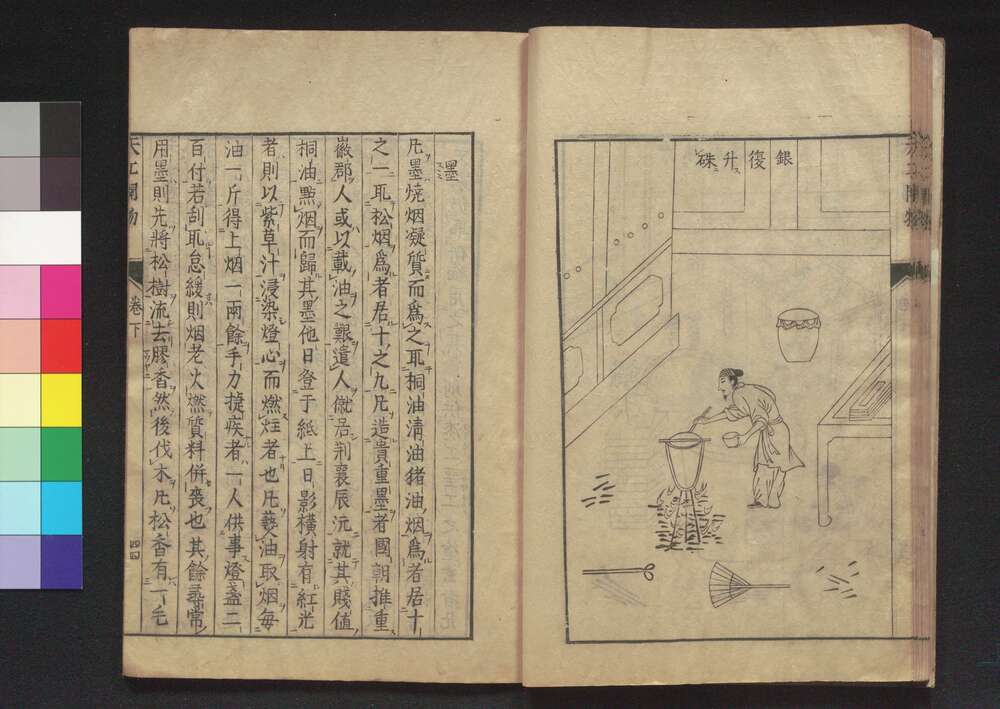 銀復升硃
墨
凡墨燒烟凝質而爲之取桐油清油猪油烟爲者居十
之一取松烟爲者居十之九凡造貴重墨者國朝推重
徽郡人或以載油之艱遣人僦居荊襄辰沅就其賤値
桐油點烟而歸其墨他日登于紙上日影橫射有紅光
者則以紫草汁浸染燈心而燃炷者也凡爇油取烟每
油一斤得上烟一兩餘手力捷疾者一人供事燈盞二
百付若刮取怠緩則烟老火燃質料併喪也其餘尋常
用墨則先將松樹流去膠香然後伐木凡松香有一毛
天工開物
卷下
四四